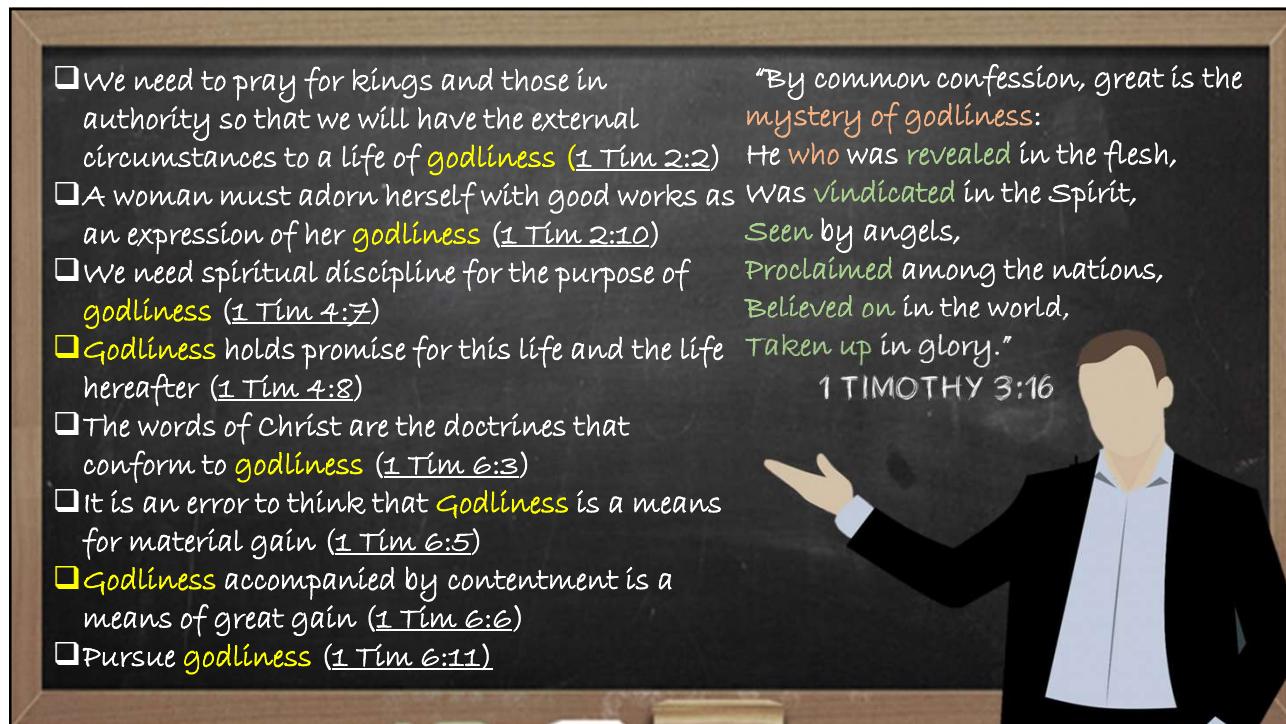 ❑We need to pray for kings and those in
authority so that we will have the external
circumstances to a life of godliness (1 Tim 2:2)
❑A woman must adorn herself with good works as
an expression of her godliness (1 Tim 2:10)
❑We need spiritual discipline for the purpose of
godliness (1 Tim 4:7)
❑Godliness holds promise for this life and the life
hereafter (1 Tim 4:8)
❑The words of Christ are the doctrines that
conform to godliness (1 Tim 6:3)
❑It is an error to think that Godliness is a means
for material gain (1 Tim 6:5)
❑Godliness accompanied by contentment is a
means of great gain (1 Tim 6:6)
❑Pursue godliness (1 Tim 6:11)
“By common confession, great is the
mystery of godliness:
He who was revealed in the flesh,
Was vindicated in the Spirit,
Seen by angels,
Proclaimed among the nations,
Believed on in the world,
Taken up in glory.”
1 TIMOTHY 3:16